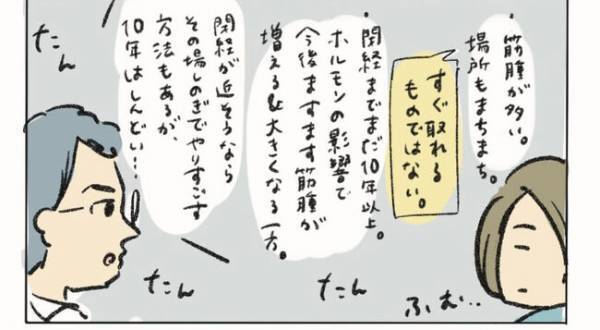 ・筋腫が多い。
場所もまちまち。
すぐ取れる
ものではない。
・閉経までまだ10年以上。
ホルモンの影響で
今後ますます筋腫が
増える&大きくなる一方。
閉経が近そうなら
その場しのぎでやりすごす
方法もあるが、
10年はしんどい…
たん
たん
たん
ふむ…